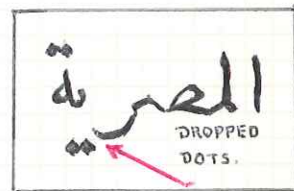 المصرية
DROPPED
DOTS.